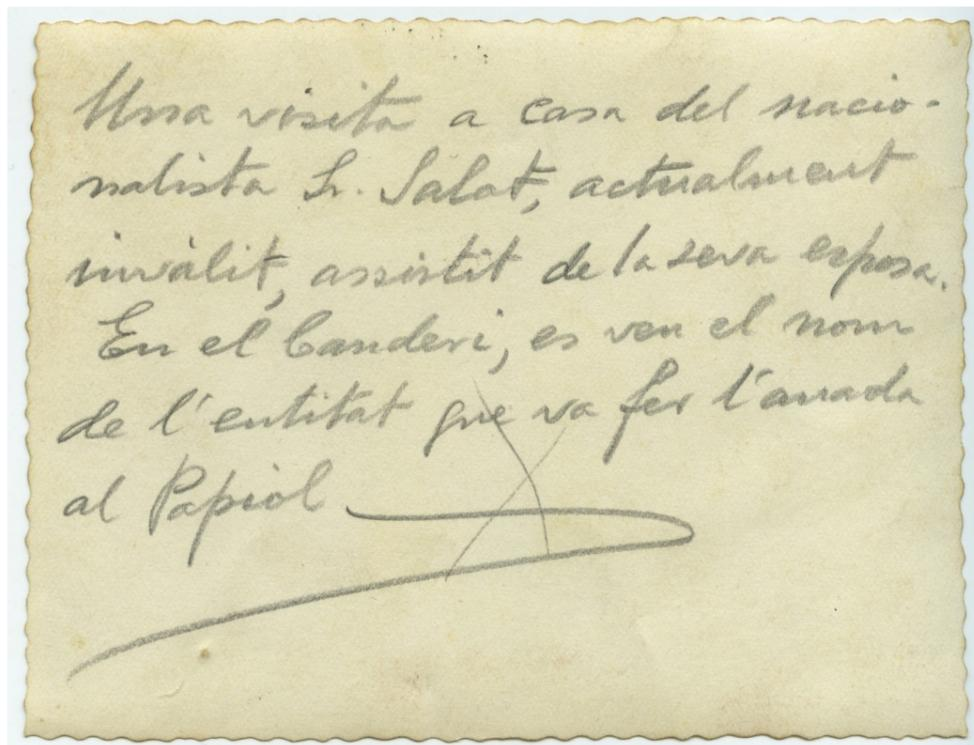 Una visita a casa del nacio-
nalista Sr. Salat, actualment
invàlit, assistit de la seva esposa.
En el banderí, es veu el nom
de l'entitat que va fer l'anada
al Papiol